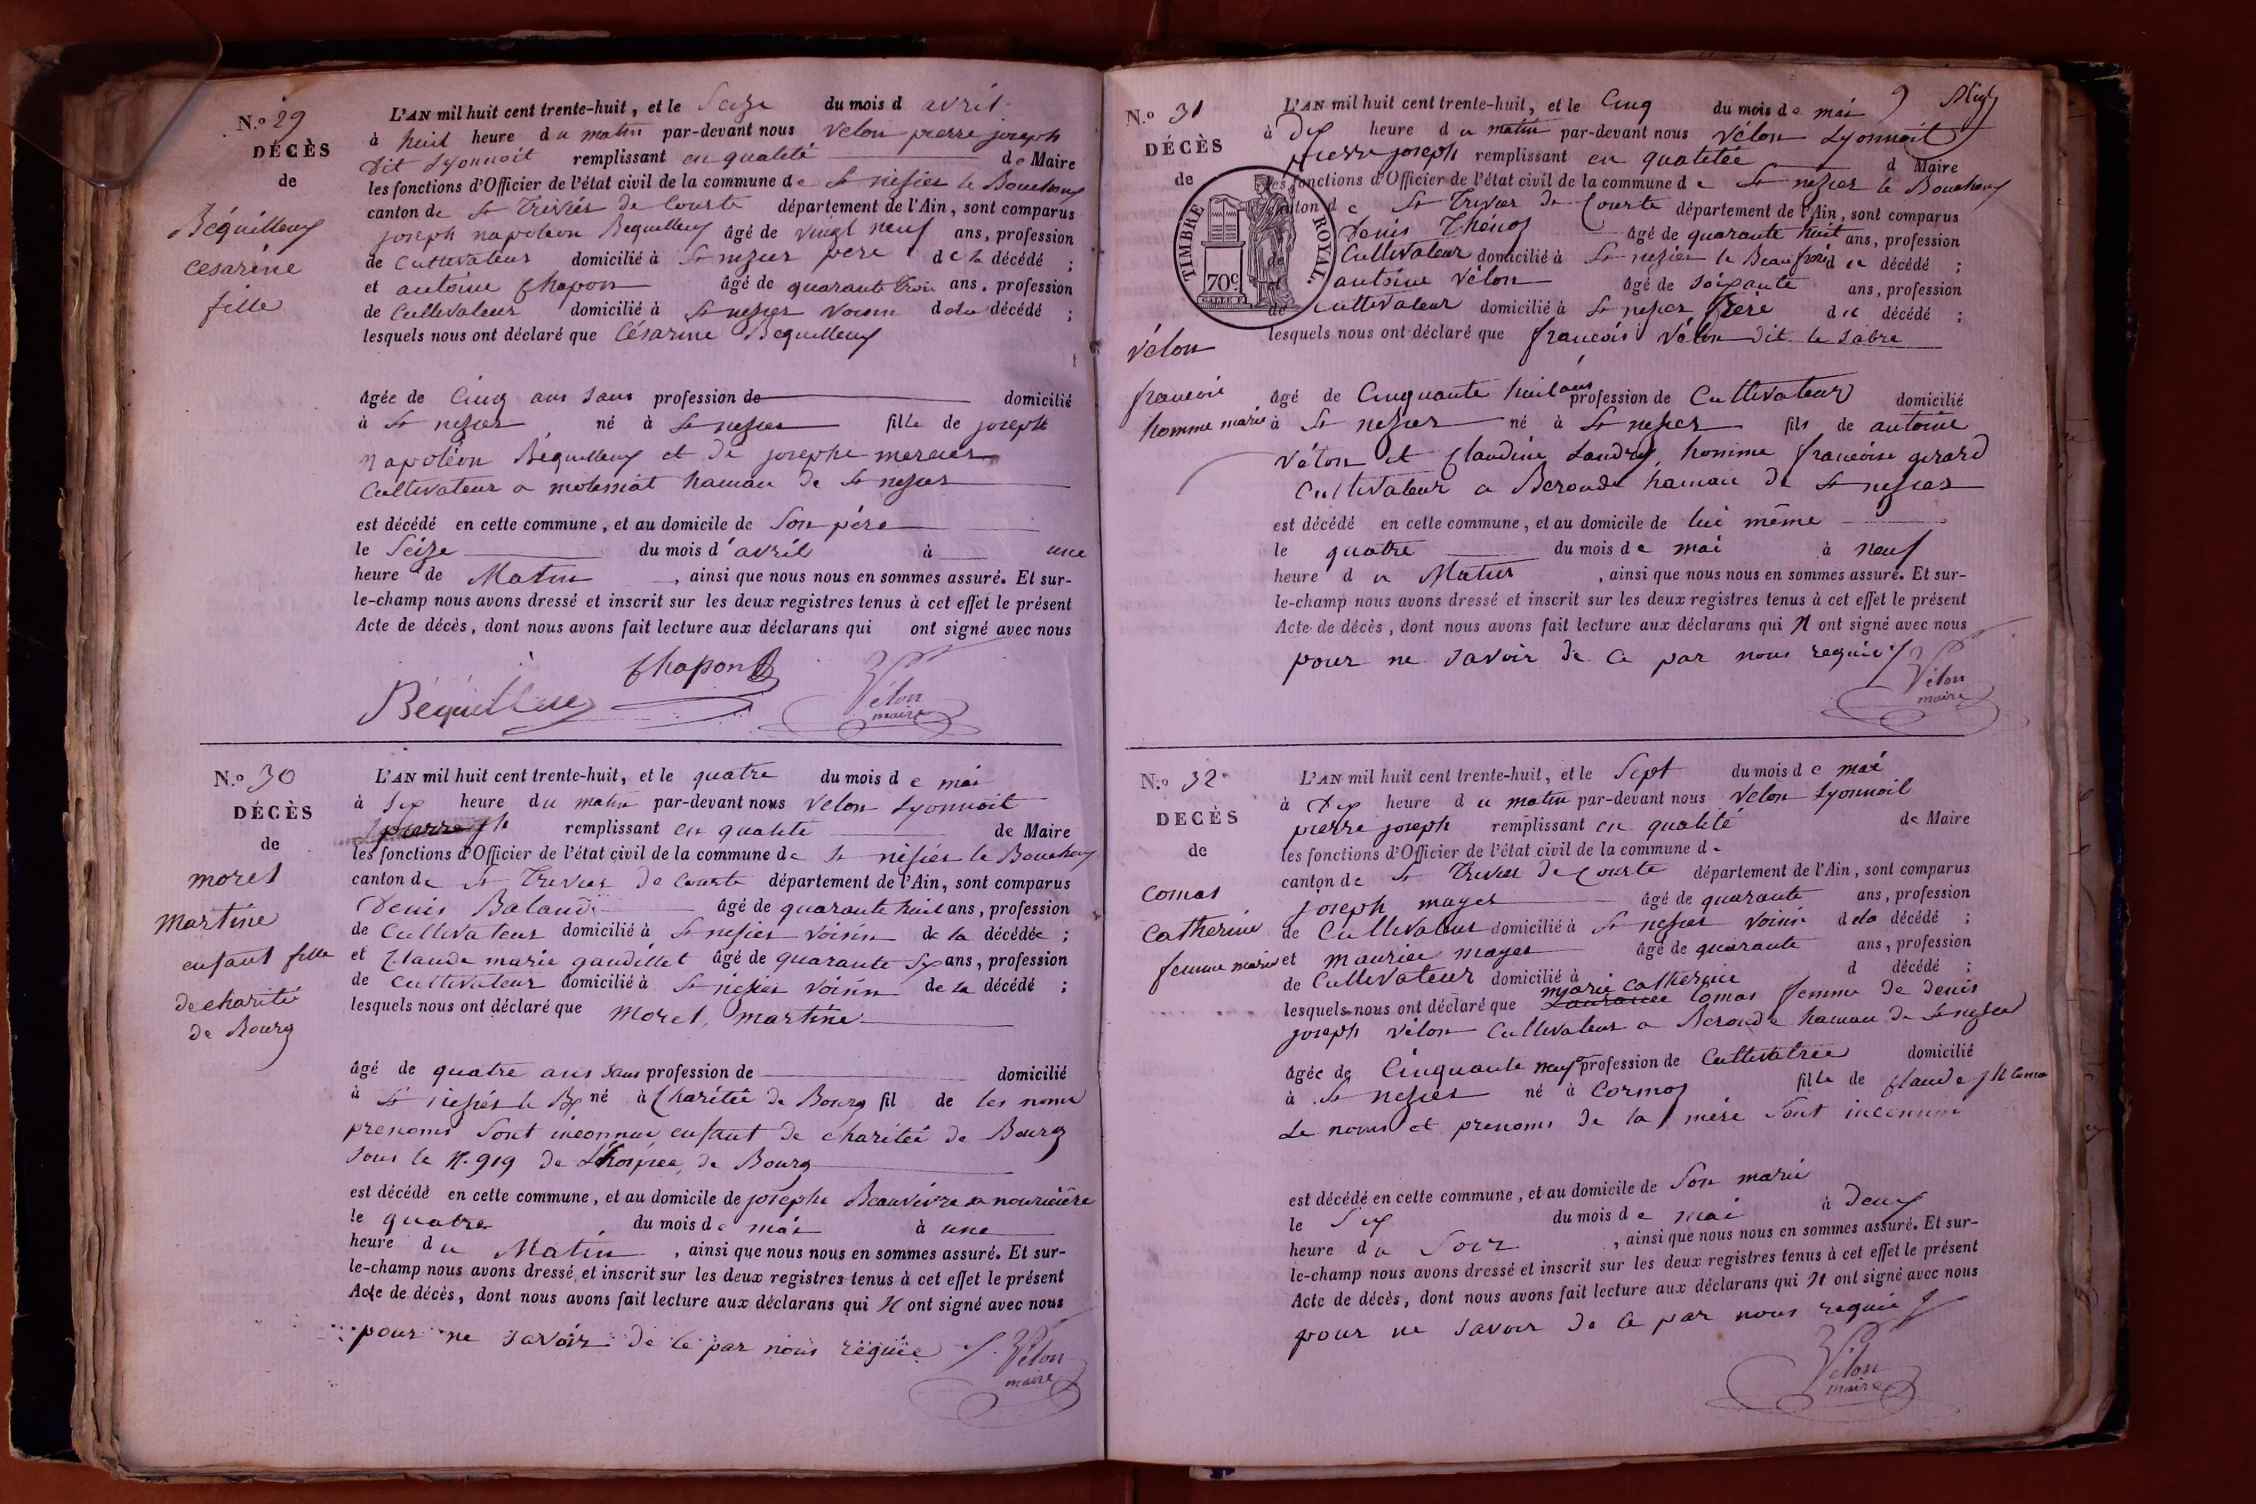 N.º 29
DÉCÈS
de
Béquilleux
Cesarine
fille
L'AN mil huit cent trente-huit, et le Seize du mois d avril
à huit heure du matin par-devant nous velon pierre joseph
dit Lyonnoit remplissant en qualité de Maire
les fonctions d'Officier de l'état civil de la commune de St nésier le Bouchoux
canton de St Trivier de Courte département de l'Ain, sont comparus
joseph napoléon Bequilleux âgé de vingt neuf ans, profession
de Cultivateur domicilié à St nezier père de la décédé ;
et antoine Chapon âgé de quarante trois ans, profession
de Cultivateur domicilié à St nesier voisin de la décédé ;
lesquels nous ont déclaré que Césarine Bequilleux
âgée de Cinq ans sans profession de domicilié
à St nesier né à St nesier fille de joseph
napoléon Béquilleux et de josephe mercier
Cultivateur a motessiat hamau de St nesier
est décédé en cette commune, et au domicile de Son père
le Seize du mois d'avril à une
heure de Matin , ainsi que nous nous en sommes assuré. Et sur-
le-champ nous avons dressé et inscrit sur les deux registres tenus à cet effet le présent
Acte de décès, dont nous avons fait lecture aux déclarans qui ont signé avec nous
Chapon
Béquilleux
Vélon
maire
N.º 30
DÉCÈS
de
moret
martine
enfant fille
de charité
de Bourg
L'AN mil huit cent trente-huit, et le quatre du mois de mai
à Six heure du matin par-devant nous velon Lyonnoit
pierre jh remplissant en qualité de Maire
les fonctions d'Officier de l'état civil de la commune de St nésier le Bouchoux
canton de St Trivier de Courte département de l'Ain, sont comparus
Denis Baland âgé de quarante huit ans, profession
de Cultivateur domicilié à St nesier voisin de la décédée ;
et Claude marie gaudillet âgé de quarante Six ans, profession
de Cultivateur domicilié à St nésier voisin de la décédé ;
lesquels nous ont déclaré que moret martine
âgé de quatre ans sans profession de domicilié
à St nésier le Bx né à Charitée de Bourg fil de les noms
prenoms sont inconnue enfant de charitée de Bourg
sous le N. 919 de L'hospice de Bourg
est décédé en cette commune, et au domicile de josephe Beauvivre sa nouricière
le quatre du mois de mai à une
heure du Matin , ainsi que nous nous en sommes assuré. Et sur-
le-champ nous avons dressé et inscrit sur les deux registres tenus à cet effet le présent
Acte de décès, dont nous avons fait lecture aux déclarans qui N ont signé avec nous
pour ne savoir de ce par nous requie
Vélon
maire
9
N.º 31
DÉCÈS
de
TIMBRE ROYAL
70c.
vélon
francois
homme marié
L'AN mil huit cent trente-huit, et le Cinq du mois de mai
à Dix heure du matin par-devant nous Vélon Lyonnoit
pierre joseph remplissant en qualitée d Maire
les fonctions d'Officier de l'état civil de la commune de St nezier le Bouchoux
canton de St Trivier de Courte département de l'Ain, sont comparus
Denis Thénoz âgé de quarante huit ans, profession
de Cultivateur domicilié à St nésier le Beaufrère du décédé ;
et antoine vélon âgé de soixante ans, profession
de Cultivateur domicilié à St nesier frère du décédé ;
lesquels nous ont déclaré que francois vélon dit le sabre
âgé de Cinquante huit ans profession de Cultivateur domicilié
à St nesier né à St nesier fils de antoine
vélon et Claudine Landry, homme francoise gerard
Cultivateur a Beroude hamau de St nesier
est décédé en cette commune, et au domicile de lui même
le quatre du mois de mai à neuf
heure du Matin , ainsi que nous nous en sommes assuré. Et sur-
le-champ nous avons dressé et inscrit sur les deux registres tenus à cet effet le présent
Acte de décès, dont nous avons fait lecture aux déclarans qui N ont signé avec nous
pour ne savoir de ce par nous requie
Vélon
maire
N.º 32
DECÈS
de
comas
Catherine
femme mariée
L'AN mil huit cent trente-huit, et le Sept du mois de mai
à Dix heure du matin par-devant nous velon Lyonnoit
pierre joseph remplissant en qualité de Maire
les fonctions d'Officier de l'état civil de la commune de
canton de St Trivier de Courte département de l'Ain, sont comparus
joseph mayer âgé de quarante ans, profession
de Cultivateur domicilié à St nesier voisin de la décédé ;
et maurice mayer âgé de quarante ans, profession
de Cultivateur domicilié à d décédé ;
marie catherine
lesquels nous ont déclaré que comas femme de denis
joseph vélon Cultivateur a Beroude hamau de St nesier
âgée de Cinquante neuf profession de Cultivatrice domicilié
à St nesier né à Cormoz fille de Claude jh comas
Le noms et prenoms de la mère sont inconnue
est décédé en cette commune, et au domicile de Son marie
le Six du mois de mai à deux
heure du Soir , ainsi que nous nous en sommes assuré. Et sur-
le-champ nous avons dressé et inscrit sur les deux registres tenus à cet effet le présent
Acte de décès, dont nous avons fait lecture aux déclarans qui N ont signé avec nous
pour ne savoir de ce par nous requie
Vélon
maire